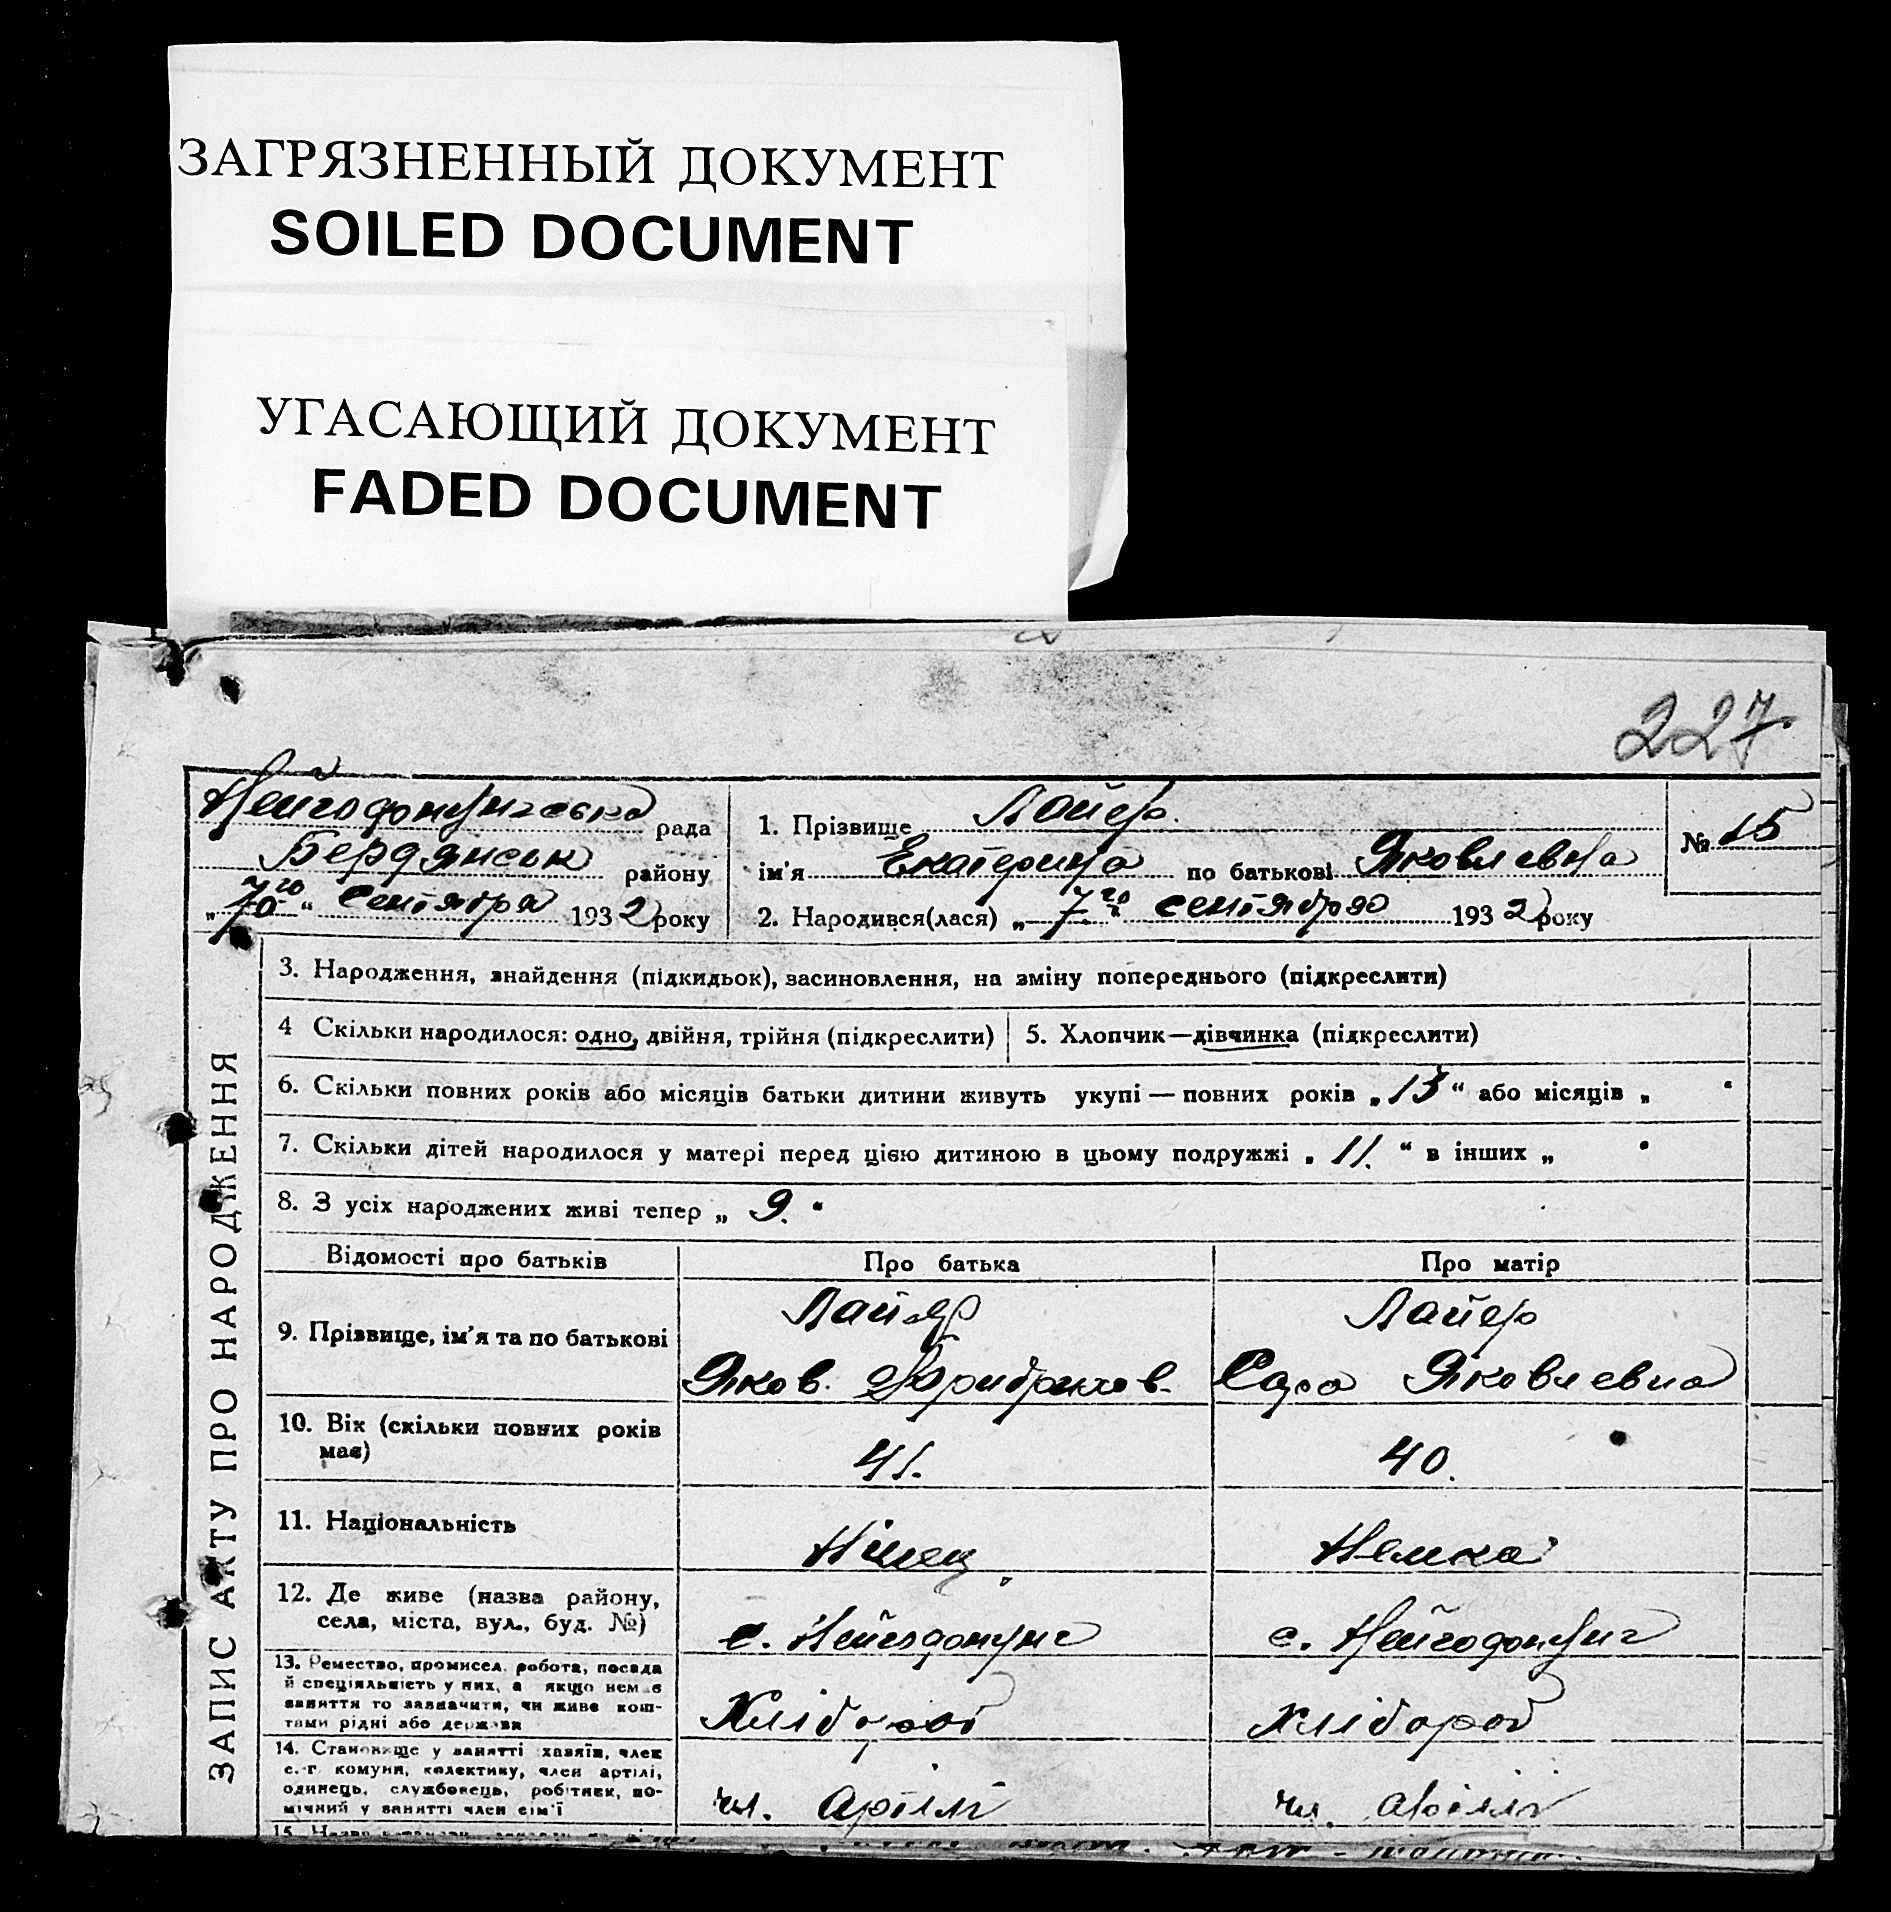 ЗАГРЯЗНЕННЫЙ ДОКУМЕНТ
SOILED DOCUMENT
УГАСАЮЩИЙ ДОКУМЕНТ
FADED DOCUMENT
227
Нейгофонунгська рада
Бердянськ району
„7го“ сентября 1932 року
1. Прізвище Лайер.
ім'я Екатерина по батькові Яковлевна
2. Народився(лася) „7го“ сентября 1932 року
№ 15
ЗАПИС АКТУ ПРО НАРОДЖЕННЯ
3. Народження, знайдення (підкидьок), засиновлення, на зміну попереднього (підкреслити)
4 Скільки народилося: одно, двійня, трійня (підкреслити)
5. Хлопчик—дівчинка (підкреслити)
6. Скільки повних років або місяців батьки дитини живуть укупі — повних років „13“ або місяців „ “
7. Скільки дітей народилося у матері перед цією дитиною в цьому подружжі „11.“ в інших „ “
8. З усіх народжених живі тепер „9.“
Відомості про батьків
Про батька
Про матір
9. Прізвище, ім'я та по батькові
Лайер
Яков. Фридрихов.
Лайер
Сара Яковлевна
10. Вік (скільки повних років
має)
41.
40.
11. Національність
Німец
Немка
12. Де живе (назва району,
села, міста, вул., буд. №)
с. Нейгофонунг
с. Нейгофонунг
13. Ремество, промисел, робота, посада
й спеціяльність у них, а якщо немає
заняття то зазначити, чи живе кош-
тами рідні або держави
Хлібороб
Хлібороб
14. Становище у занятті хазяїн, член
с.-г. комуни, колективу, член артілі,
одинець, службовець, робітник, по-
мічний у занятті член сім'ї
чл. артілі
чл. артілі